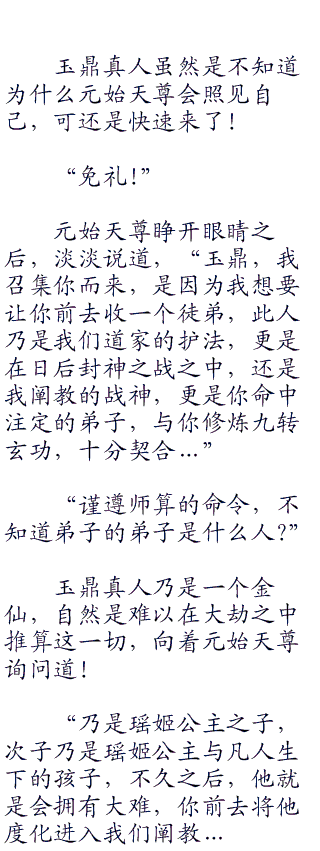 玉鼎真人虽然是不知道
为什么元始天尊会照见自
己，可还是快速来了！
“免礼！”
元始天尊睁开眼睛之
后，淡淡说道，“玉鼎，我
召集你而来，是因为我想要
让你前去收一个徒弟，此人
乃是我们道家的护法，更是
在日后封神之战之中，还是
我阐教的战神，更是你命中
注定的弟子，与你修炼九转
玄功，十分契合…”
“谨遵师算的命令，不
知道弟子的弟子是什么人？”
玉鼎真人乃是一个金
仙，自然是难以在大劫之中
推算这一切，向着元始天尊
询问道！
“乃是瑶姬公主之子，
次子乃是瑶姬公主与凡人生
下的孩子，不久之后，他就
是会拥有大难，你前去将他
度化进入我们阐教…